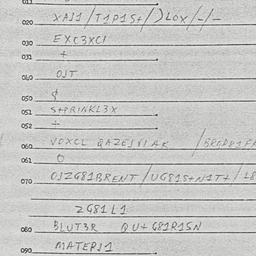 011
020 XAJ1/T1P1S+/)LOX/-/-
030 EXC3XCI
031 +
040 OJT
050 ¢
051 S+PRINKL3X
052 +
060 VOXCL QAZEJVIAK /BROD81FA
061 O
070 OJZG81BRENT/UG81S+N1T+/L8
ZG81L1
080 BLUT3R QU+G81R1SN
090 MATERJ1